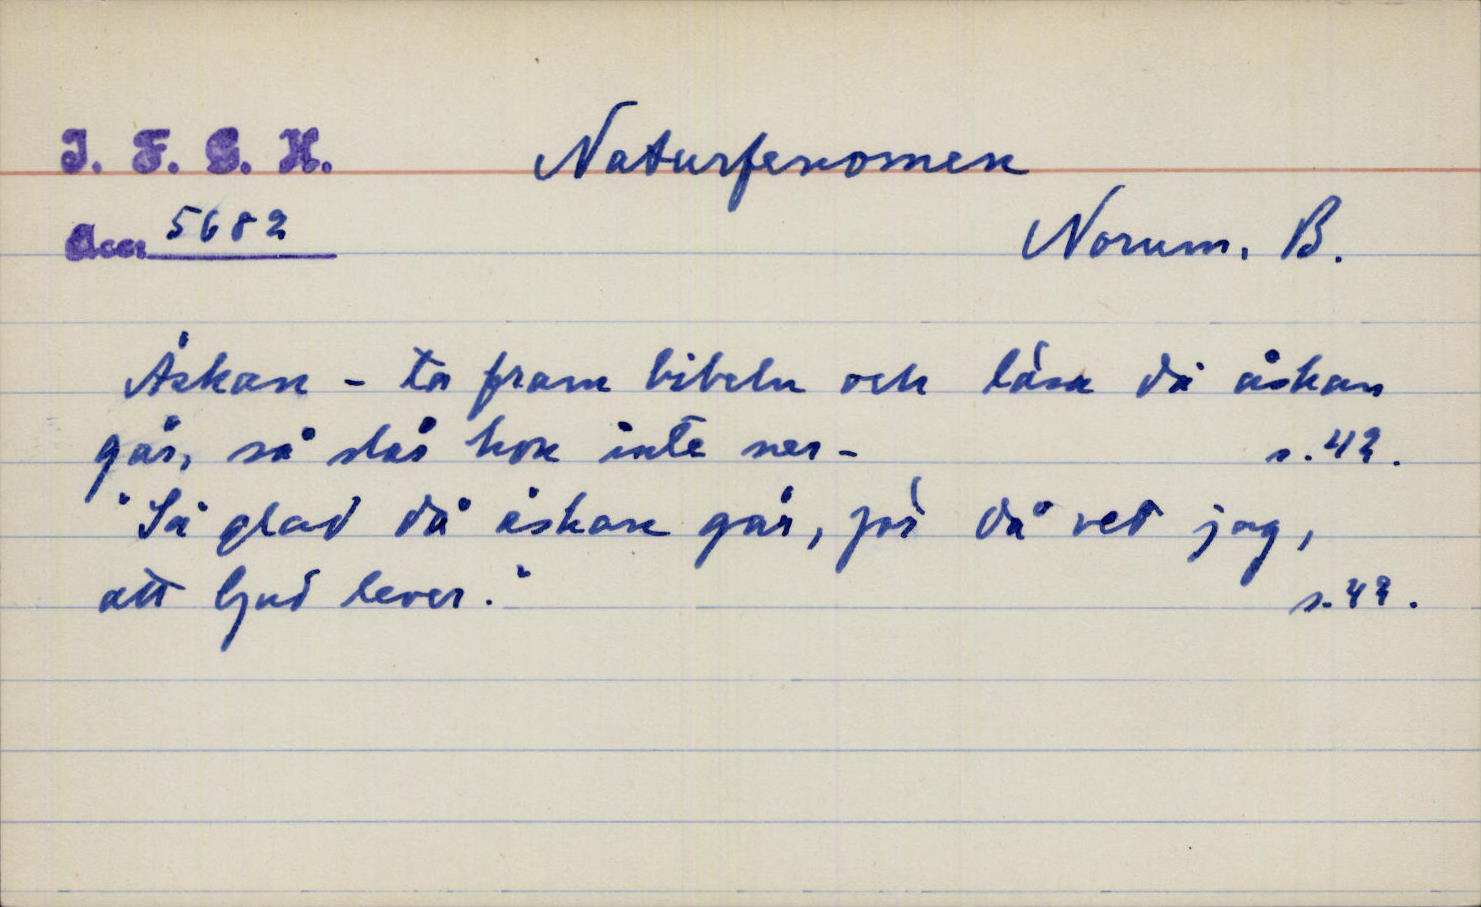 I. F. G. H.
Naturfenomen
Acc. 5682
Norum, B.
Åskan - ta fram bibeln och läsa då åskan
går, så slår hon inte ner -
s. 42.
"Så glad då åskan går, för då vet jag,
att Gud lever."
s. 42.